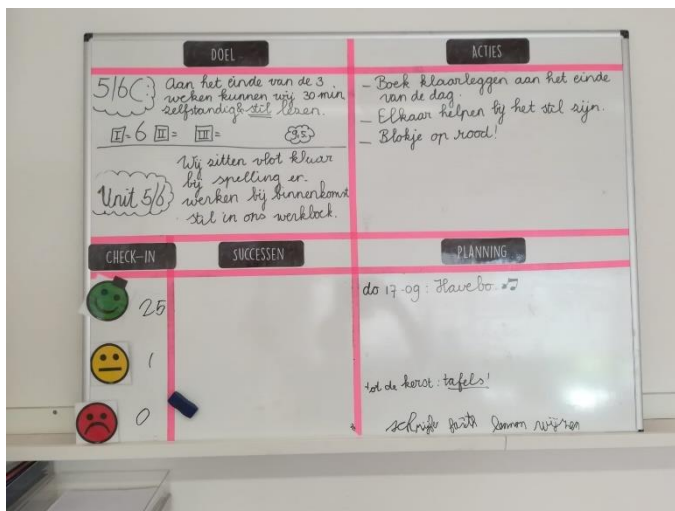 DOEL
5/6C:
Aan het einde van de 3
weken kunnen wij 30 min
zelfstandig stil lezen.
I = 6 II = III =
Unit 5/6
Wij zitten vlot klaar
bij spelling en
werken bij binnenkomst
stil in ons werkboek.
ACTIES
- Boek klaarleggen aan het einde
van de dag.
- Elkaar helpen bij het stil zijn.
- Blokje op rood!
CHECK-IN
25
1
0
SUCCESSEN
PLANNING
do 17-09: Havebo
tot de kerst: tafels!